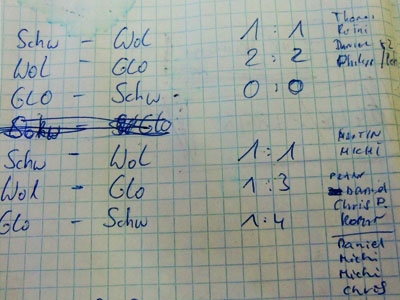 Schw - Wol 1 : 1
Wol - Glo 2 : 2
Glo - Schw 0 : 0
Schw - Wol 1 : 1
Wol - Glo 1 : 3
Glo - Schw 1 : 4
Daniel
Philipp
MARTIN
MICHI
Daniel
Chris P.
Daniel
Michi
Michi
Chris